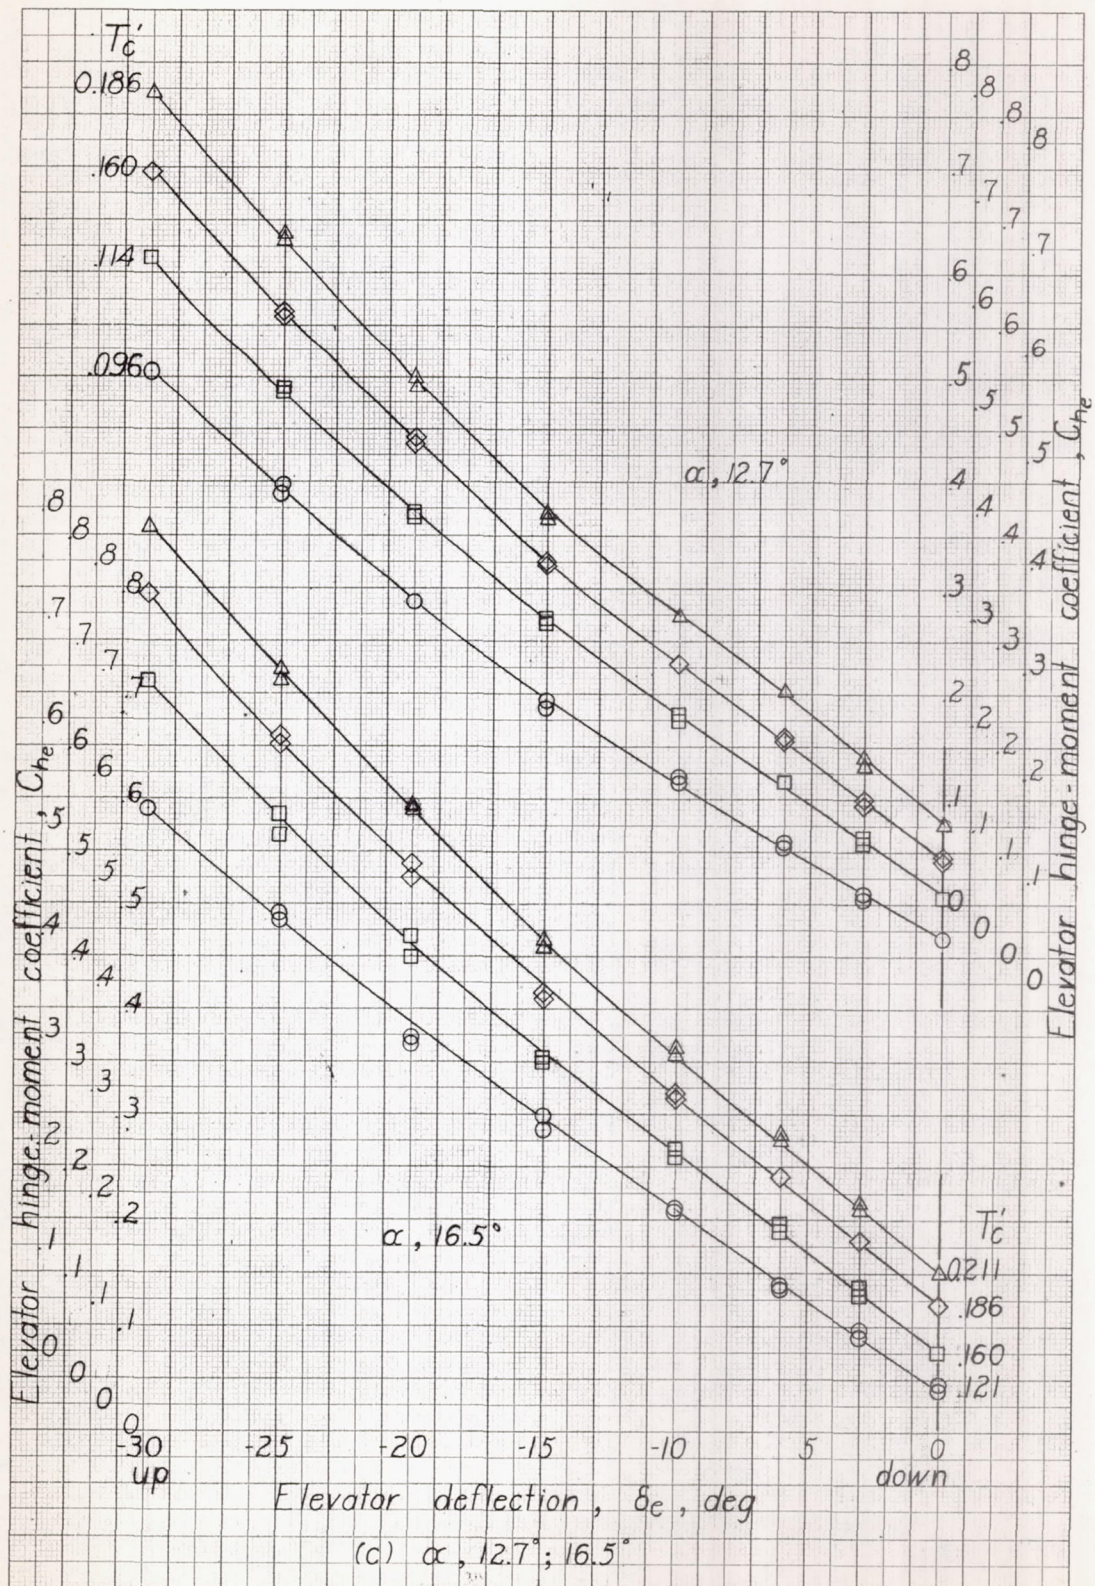 Tc'
0.186
.160
.114
.096
.8
.8
.8
.8
.7
.7
.7
.7
.6
.6
.6
.6
.5
.5
.5
.5
.4
.4
.4
.4
.3
.3
.3
.3
.2
.2
.2
.2
.1
.1
.1
.1
0
0
0
0
Elevator hinge-moment coefficient, Che
α, 12.7°
.8
.8
.8
.8
.7
.7
.7
.7
.6
.6
.6
.6
.5
.5
.5
.5
.4
.4
.4
.4
.3
.3
.3
.3
.2
.2
.2
.2
.1
.1
.1
.1
0
0
0
0
Elevator hinge-moment coefficient, Che
α, 16.5°
Tc'
0.211
.186
.160
.121
-30 -25 -20 -15 -10 5 0
up down
Elevator deflection, δe, deg
(c) α, 12.7°; 16.5°